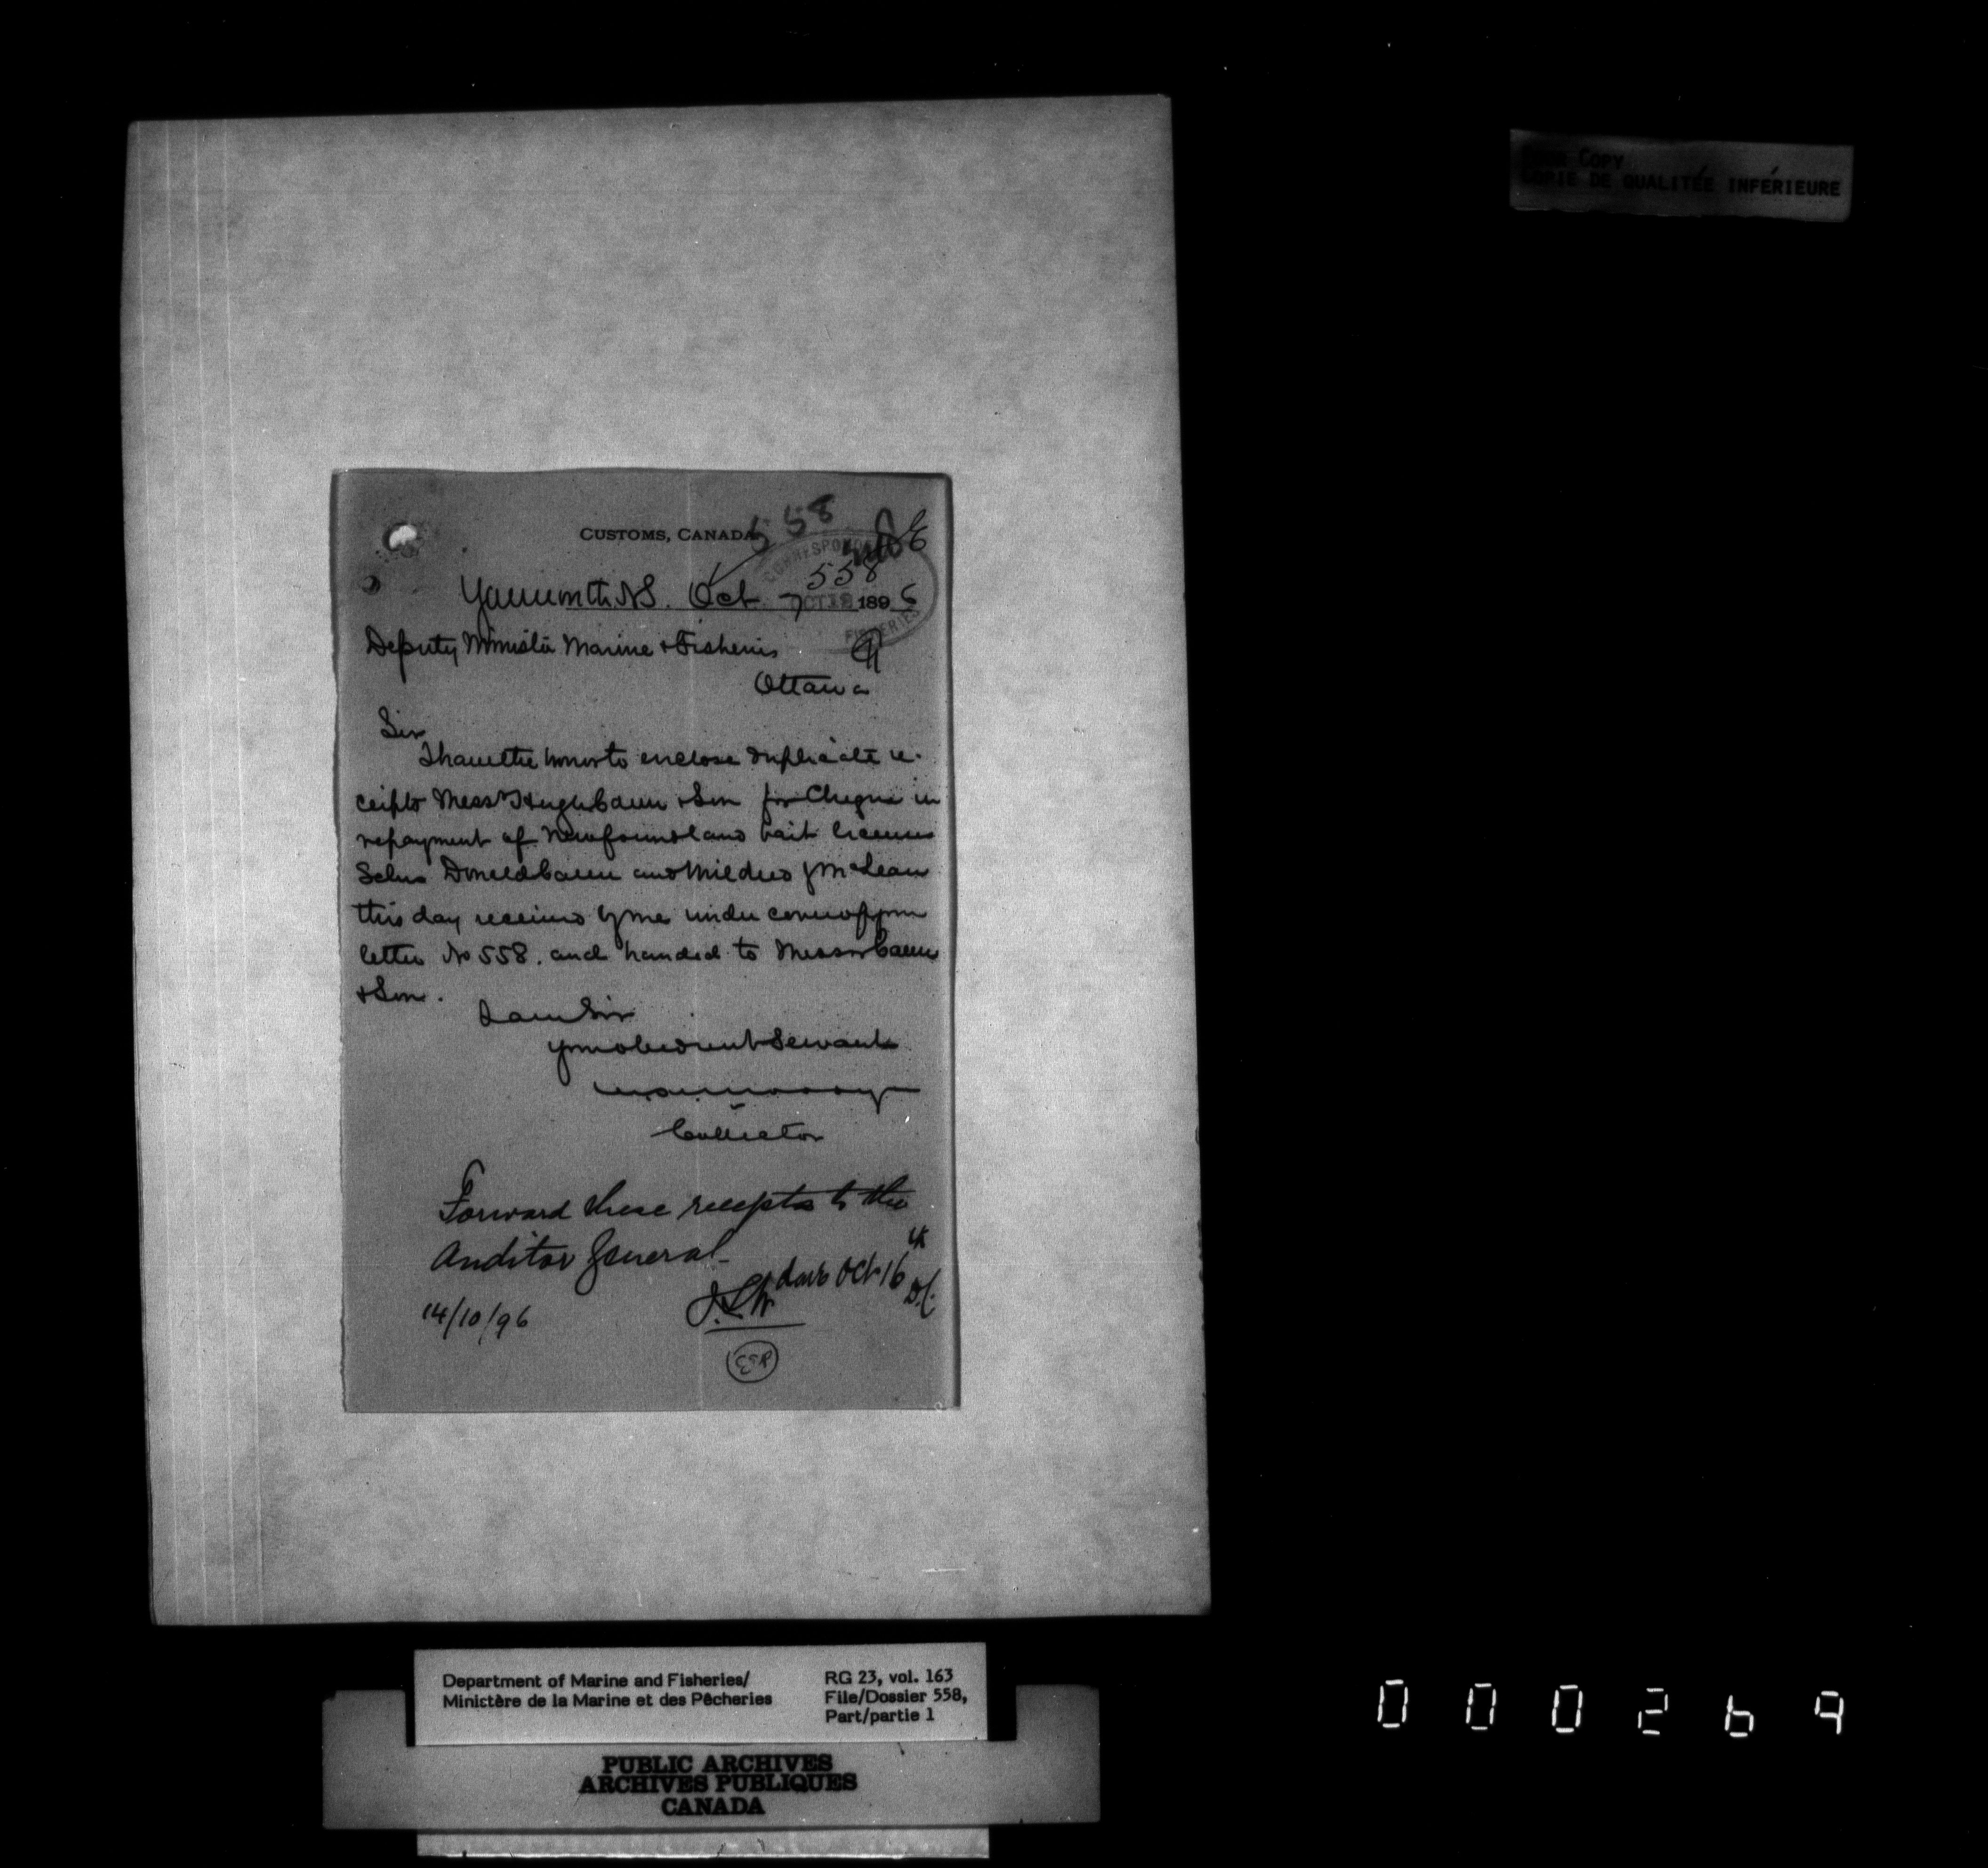 POOR COPY
COPIE DE QUALITÉE INFÉRIEURE
558
CUSTOMS, CANADA
CORRESPONDENCE
558
Yarmouth NS. Oct 7 1896
OCT 12
FISHERIES
Deputy Minister Marine & Fisheries
Ottawa
Sir
I have the honor to enclose duplicate re-
ceipts Messrs Hugh Cann & Son for Cheque in
repayment of Newfoundland bait licenses
Schrs Donald Cann and Mildred McLean
this day received by me under cover of your
letter No 558. and handed to Messrs Cann
& Son.
I am Sir
Your obedient Servant
Collector
Forward these receipts to the
Auditor General
Oct 16
14/10/96
Department of Marine and Fisheries/
Ministère de la Marine et des Pêcheries
RG 23, vol. 163
File/Dossier 558,
Part/partie 1
PUBLIC ARCHIVES
ARCHIVES PUBLIQUES
CANADA
000269